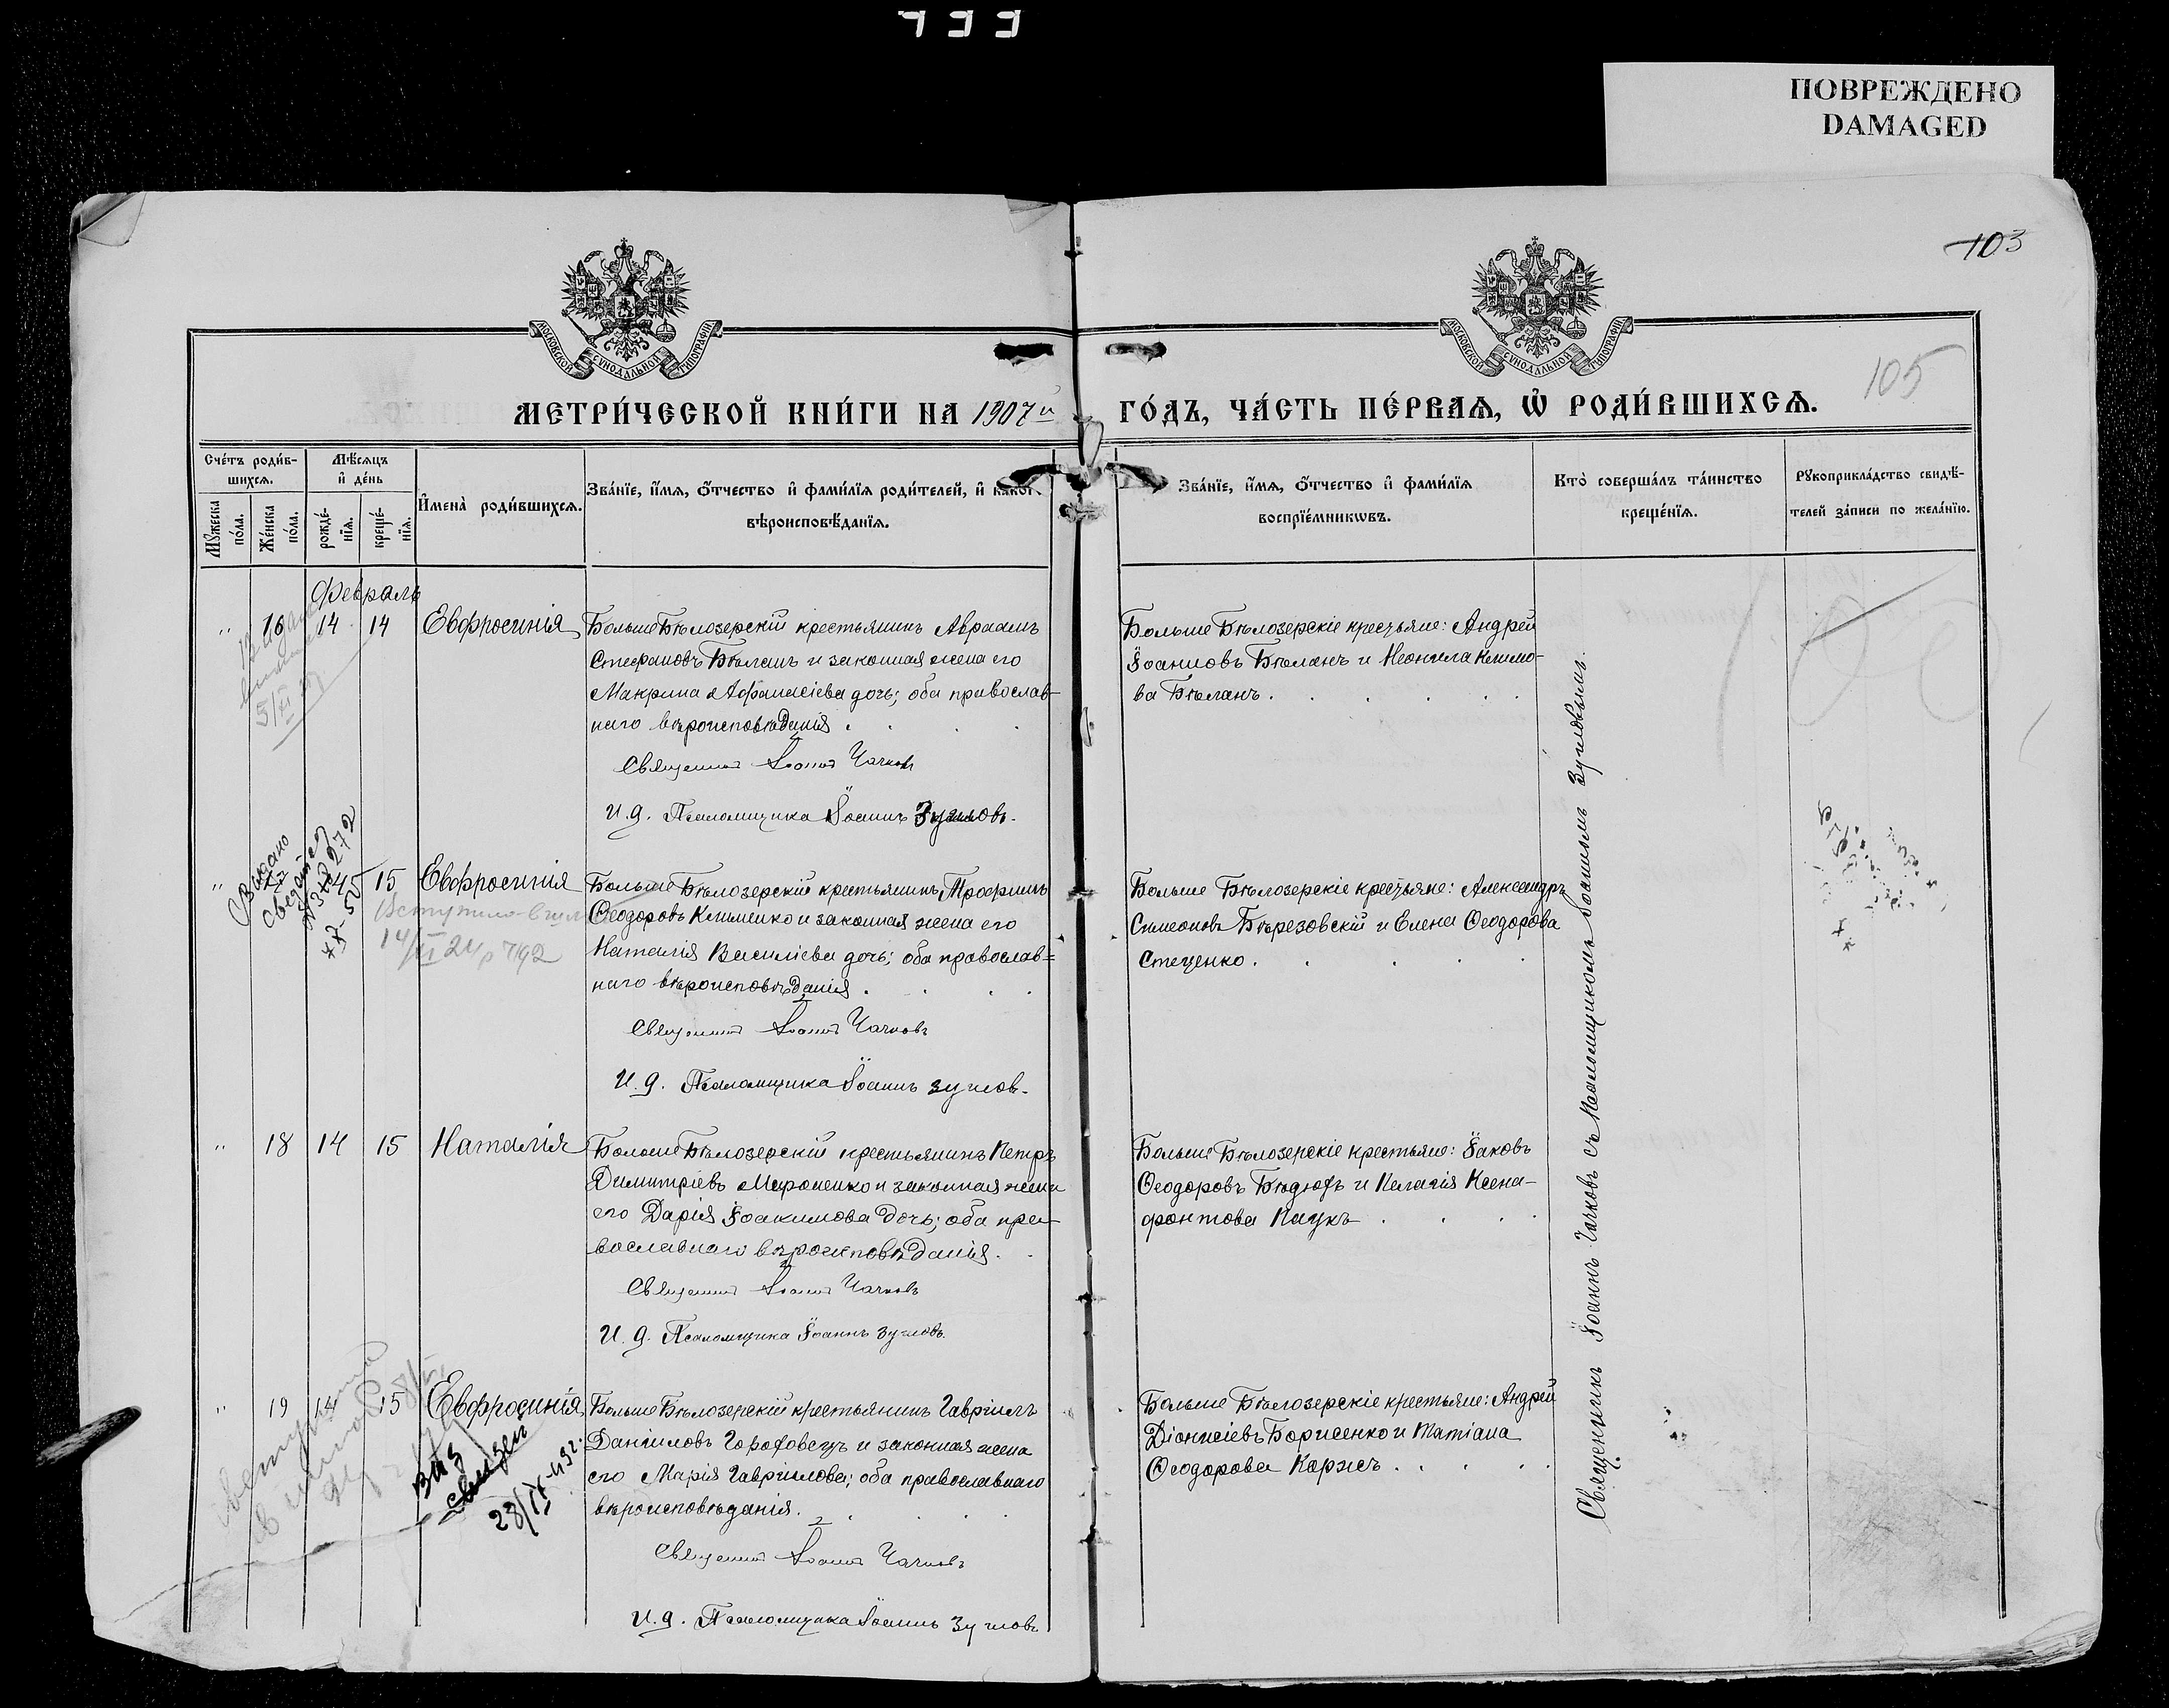 733
ПОВРЕЖДЕНО
DAMAGED
103
105
МОСКОВСКОЙ СѴНОДАЛЬНОЙ ТИПОГРАФІИ
МОСКОВСКОЙ СѴНОДАЛЬНОЙ ТИПОГРАФІИ
МЕТРИ́ЧЕСКОЙ КНИ́ГИ НА 1907й ГО́ДЪ, ЧА́СТЬ ПЕ́РВАѦ, Ѡ҆ РОДИ́ВШИХСѦ.
Сче́тъ роди́в-
шихсѧ.
Мꙋ́жеска
по́ла.
Же́нска
по́ла.
Мѣ́сѧцъ
и҆ де́нь
рожде́-
нїѧ.
креще́-
нїѧ.
И҆мена̀ роди́вшихсѧ.
Зва́нїе, и҆́мѧ, ѻ҆́тчество и҆ фами́лїѧ роди́телей, и҆ како́гѡ
вѣроисповѣ́данїѧ.
Зва́нїе, и҆́мѧ, ѻ҆́тчество и҆ фами́лїѧ
воспрїе́мникѡвъ.
Кто̀ соверша́лъ та́инство
креще́нїѧ.
Рꙋкоприкла́дство свидѣ́-
телей за́писи по жела́нїю.
Февраль
" 16 14 14 Евфросинія
Больше Бѣлозерскій крестьянинъ Авраамъ
Стефановъ Бѣланъ и законная жена его
Макрина Афанасіева дочь; оба православ-
наго вѣроисповѣданія
Священникъ Іоаннъ Чачковъ
И. д. Псаломщика Іоаннъ Зугловъ.
Больше Бѣлозерскіе крестьяне: Андрей
Іоанновъ Бѣланъ и Неонила Климо-
ва Бѣланъ.
5/XI
" 14 15 Евфросинія
Больше Бѣлозерскій крестьянинъ Трофимъ
Ѳеодоровъ Клименко и законная жена его
Наталія Василіева дочь; оба православ=
наго вѣроисповѣданія.
Священникъ Іоаннъ Чачковъ
И. д. Псаломщика Іоаннъ Зугловъ.
Больше Бѣлозерскіе крестьяне: Александръ
Симеоновъ Бѣрезовскій и Елена Ѳеодорова
Стеценко.
Выдано
" 18 14 15 Наталія
Больше Бѣлозерскій крестьянинъ Петръ
Димитріевъ Мироненко и законная жена
его Дарія Іоакимова дочь; оба пра-
вославнаго вѣроисповѣданія.
Священникъ Іоаннъ Чачковъ
И. д. Псаломщика Іоаннъ Зугловъ.
Больше Бѣлозерскіе крестьяне: Іаковъ
Ѳеодоровъ Бѣдюхъ и Пелагія Ксено-
фонтова Паукъ
" 19 14 15 Евфросинія
Больше Бѣлозерскій крестьянинъ Гавріилъ
Даніиловъ Гороховецъ и законная жена
его Марія Гавріилова; оба православнаго
вѣроисповѣданія.
Священникъ Іоаннъ Чачковъ
И. д. Псаломщика Іоаннъ Зугловъ
Больше Бѣлозерскіе крестьяне: Андрей
Діонисіевъ Борисенко и Татіана
Ѳеодорова Коржъ.
Священникъ Іоаннъ Чачковъ съ Псаломщикомъ Іоанномъ Зугловымъ.